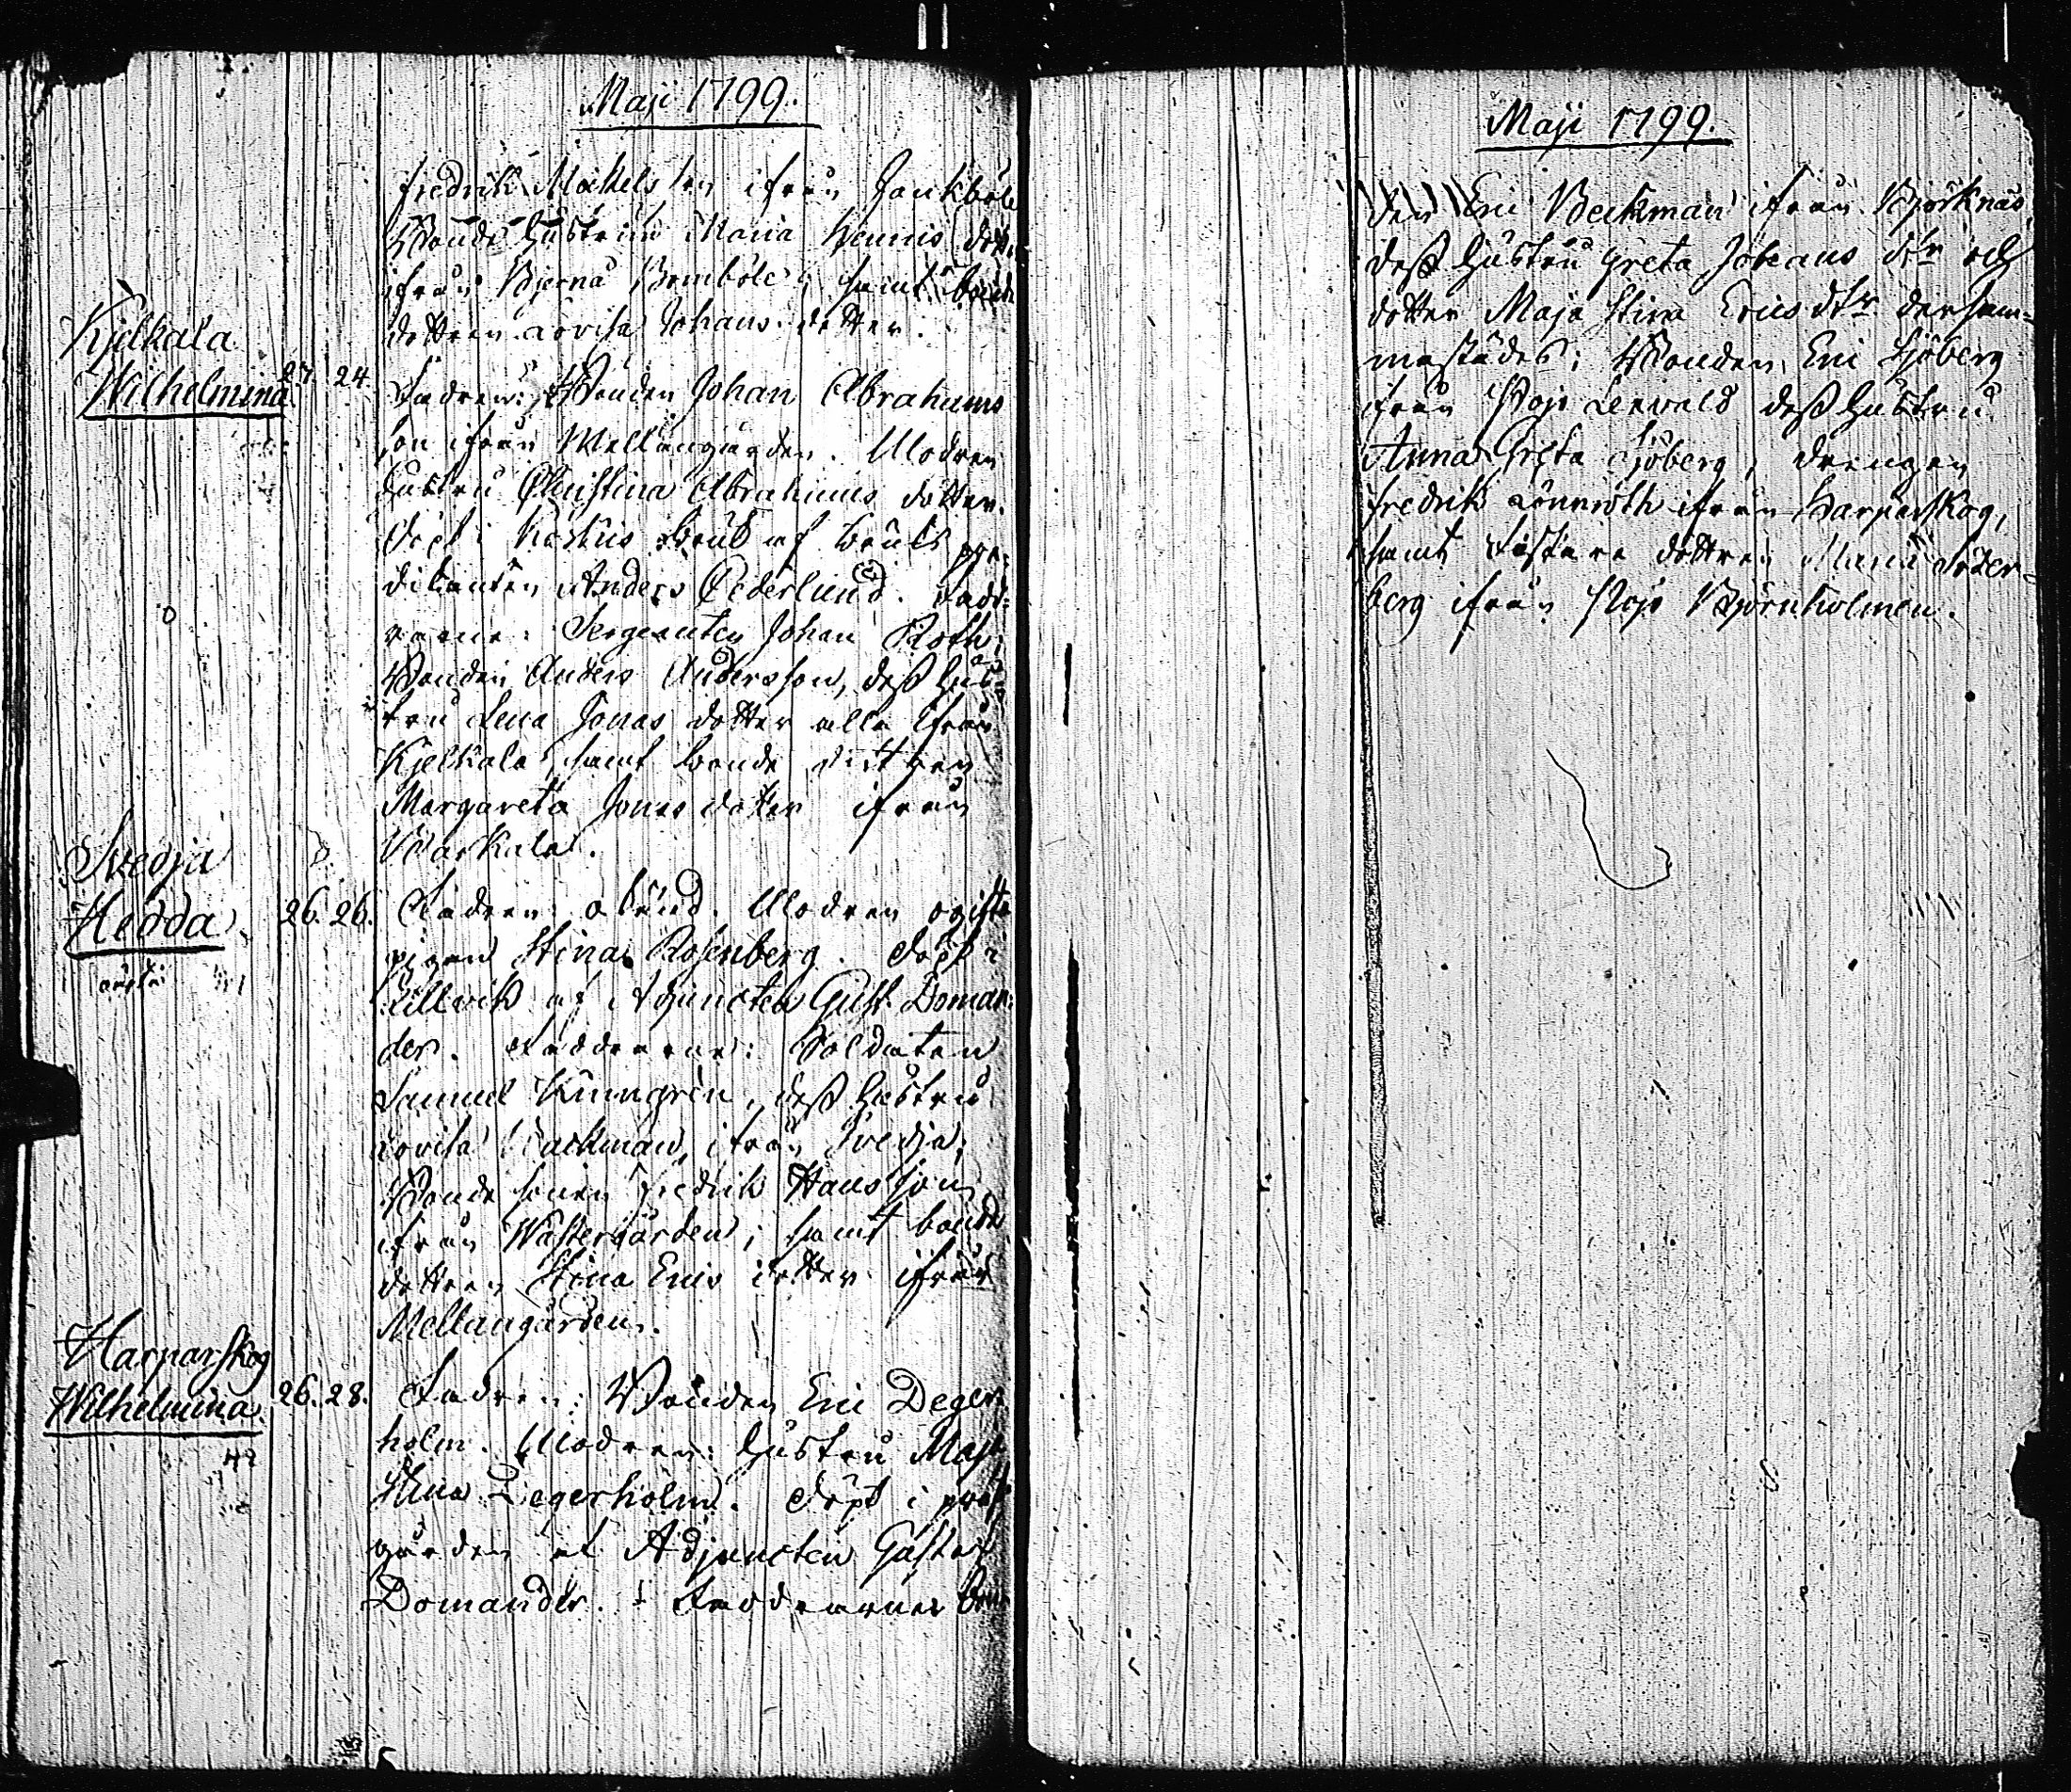 Maji 1799.
Fredrik Mickelsson ifrån Jonkböle
Bonde Hustrun Maria Henrics dott.
ifrån Bjerna Bomböle; samt bonde
dottren Lovisa Johans dotter.
Kjelkala
Wilhelmina 24. Fadren: Bonden Johan Abrahams
son ifrån Mellangården. Modren
Hustru Christina Abrahams dotter.
Döpt i af Bruks pre-
dikanten Anders Cederlund. Fadd-
rarne: Sergeanten Johan Roth;
Bonden Anders Andersson, dess Hus-
tru Lena Jonas dotter alla ifrån
Kjelkala, samt bonde dottren
Margareta Jonas dotter ifrån
Warkala.
Svedja
Hedda. 26. 26. Fadren okänd. Modren ogifta
pigan Stina Rosenberg. Döpt i
Lillvik af Adjuncten Gust. Doman-
der. Faddrarne: Soldaten
Samuel Kinngrén, dess Hustru
Lovisa Wackman, ifrån Svedja;
Bonde sonen Fredrik Hansson
ifrån Westergården; samt bonde
dottren Stina Erics dotter ifrån
Mellangården.
Harparskog
Wilhelmina. 26. 28. Fadren: Bonden Eric Deger-
holm. Modren: Hustru Maja
Stina Degerholm. Döpt i prest
gården af Adjuncten Gustaf
Domander. Faddrarne: Bon-
Maji 1799.
den Eric Beckman ifrån Björknäs,
dess Hustru Greta Johans dtr och
dotter Maja Stina Erics dtr dersam-
mastädes; Bonden Eric Sjöberg
ifrån Pojo Lervald dess Hustru
Anna Greta Sjöberg, drengen
Fredrik Lönnroth ifrån Harparskog,
samt dottren Maria Söder-
berg ifrån Pojo Björnholmen.